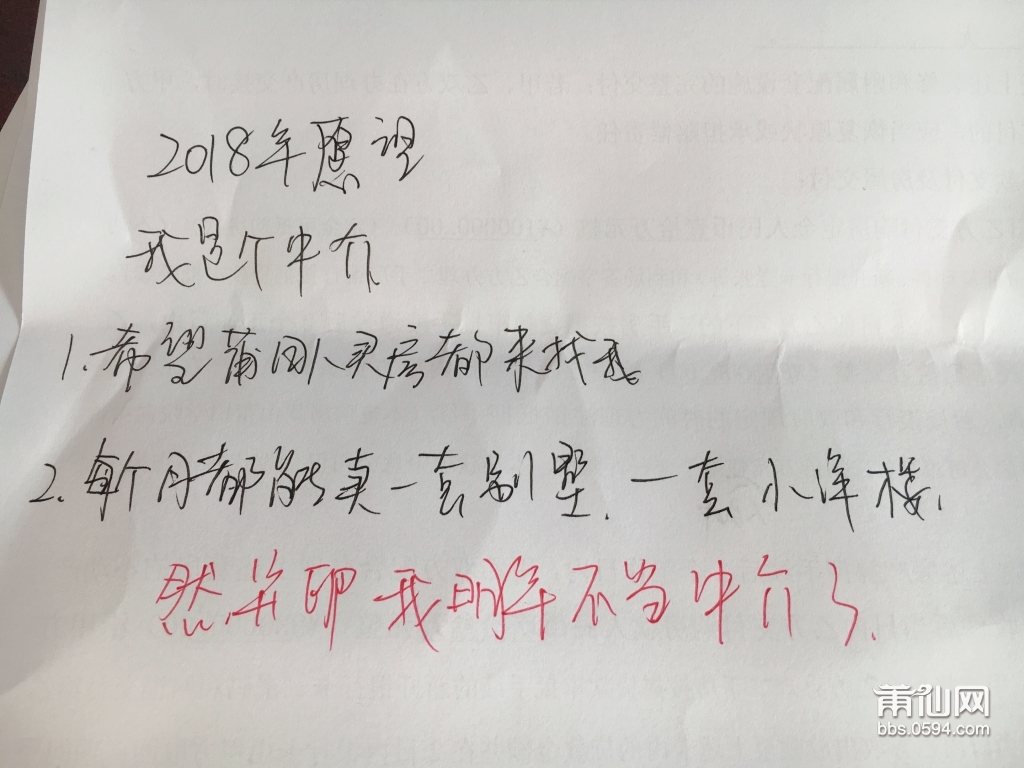 2018年愿望
我是个中介
1.希望莆田人买房都来找我。
2.每个月都能卖一套别墅.一套小洋楼.
然并卵 我明年不当中介了.
莆仙网
bbs.0594.com